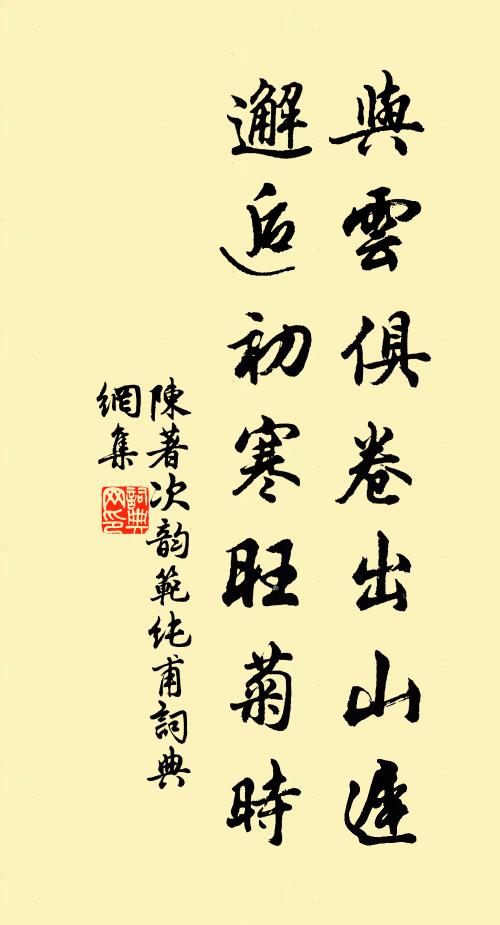 與雲俱卷出山遲
邂逅初寒旺菊時
陳著次韵範純甫詞典
網集
詞典
网印